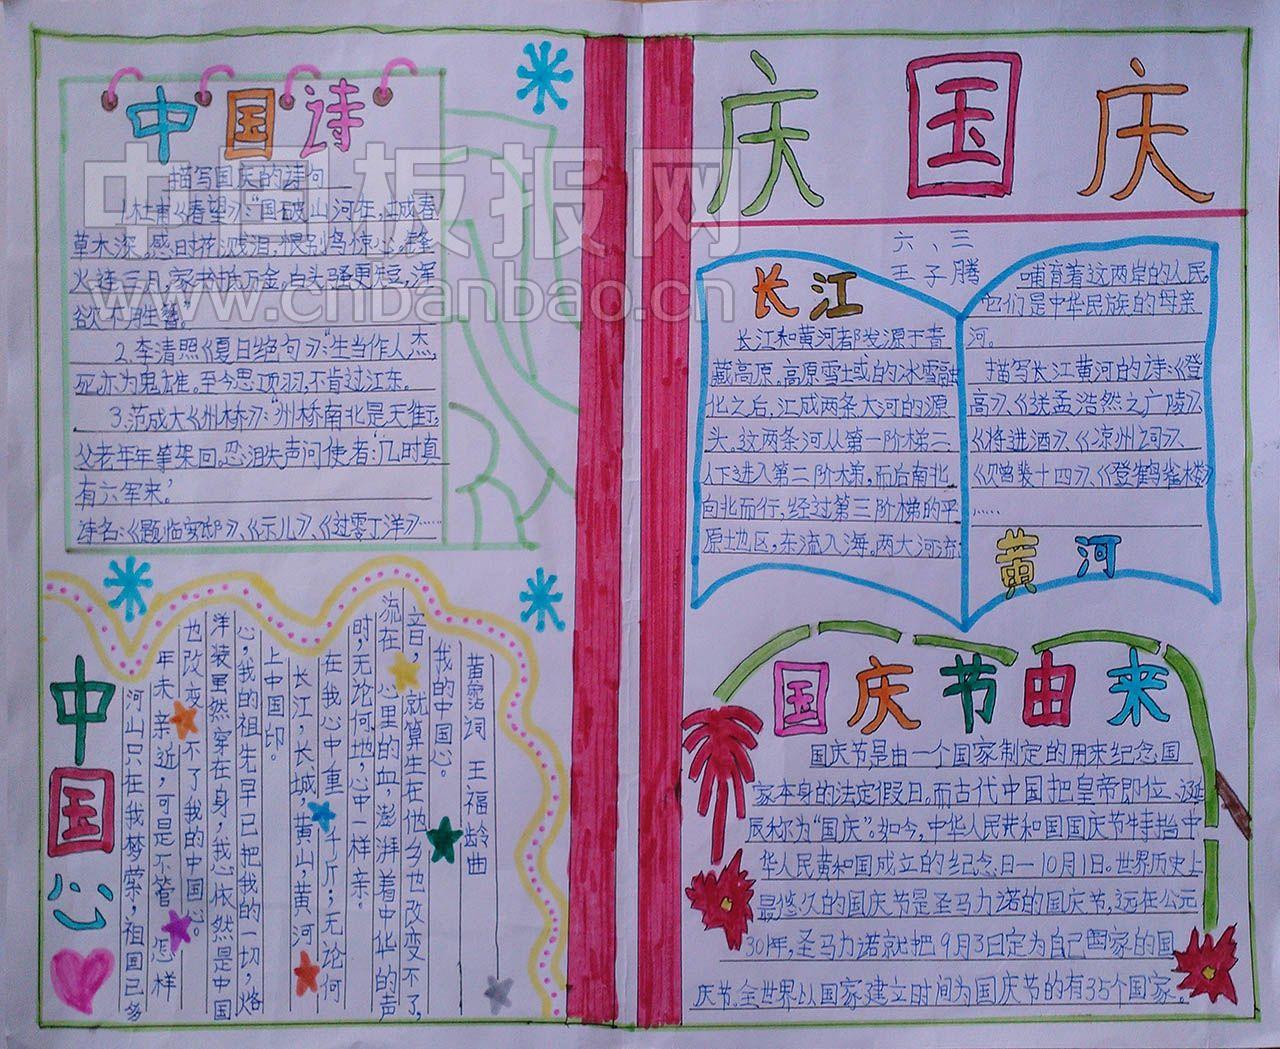 中国诗
描写国庆的诗句
1.杜甫《春望》:“国破山河在,城成春
草木深。感时花溅泪,恨别鸟惊心。烽
火连三月,家书抵万金。白头骚更短,浑
欲不用生簪。”
2.李清照《夏日绝句》:“生当作人杰,
死亦为鬼雄。至今思项羽,不肯过江东。
3.范成大《州桥》:“州桥南北是天街,
父老年年等架回。忍泪失声问使者:‘几时真
有六军来?’
诗名:《题临安邸》、《示儿》、《过零丁洋》……
中国心
黄霑词 王福龄曲
河山只在我梦萦,祖国已多
年未亲近,可是不管怎样
也改变不了我的中国心。
洋装虽然穿在身,我心依然是中国
心,我的祖先早已把我的一切,烙
上中国印。
长江,长城,黄山,黄河
在我心中重千斤;无论何
时,无论何地,心中一样亲。
流在心里的血,澎湃着中华的声
音,就算生在他乡也改变不了,
我的中国心。
庆国庆
六、三
王子腾
长江
长江和黄河都发源于青
藏高原。高原雪域的冰雪融
化之后,汇成两条大河的源
头,这两条河从第一阶梯二
人下进入第二阶梯,而后南北
向北而行,经过第三阶梯的平
原地区,东流入海。两大河流
哺育着这两岸的人民,
它们是中华民族的母亲
河。
描写长江黄河的诗:《登
高》、《送孟浩然之广陵》
《将进酒》、《凉州词》、
《登鹳雀楼》
……
黄河
国庆节由来
国庆节是由一个国家制定的用来纪念国
家本身的法定假日。而古代中国把皇帝即位、诞
辰称为“国庆”。如今,中华人民共和国国庆节特指中
华人民共和国成立的纪念日一10月1日。世界历史上
最悠久的国庆节是圣马力诺的国庆节,远在公元
301年,圣马力诺就把9月3日定为自己国家的国
庆节。全世界以国家建立时间为国庆节的有35个国家。
中国板报网
www.chbanbao.cn